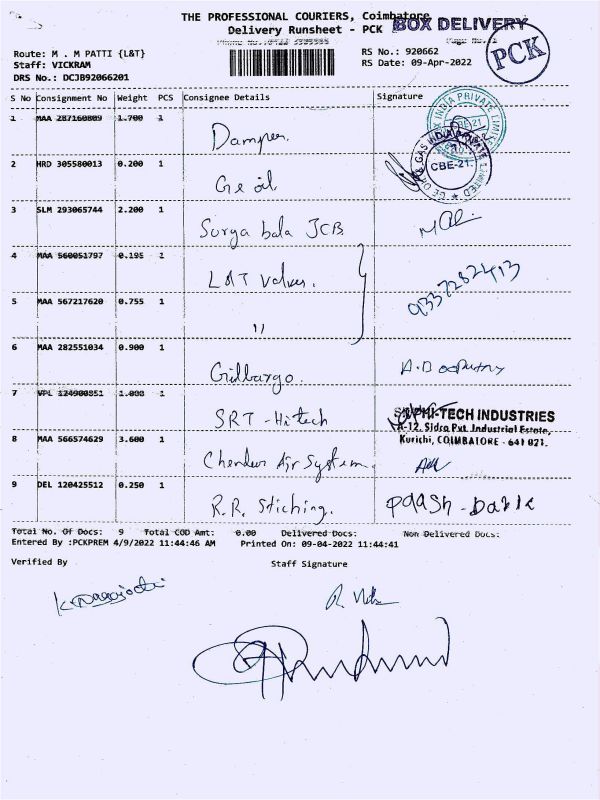 THE PROFESSIONAL COURIERS, Coimbatore
BOX DELIVERY
Delivery Runsheet - PCK
PCK
Route: M . M PATTI {L&T}
Staff: VICKRAM
DRS No.: DCJB92066201
RS No.: 920662
RS Date: 09-Apr-2022
S No Consignment No Weight PCS Consignee Details Signature
1 MAA 287160809 1.700 1 Damper.
2 HRD 305580013 0.200 1 Ge oil
CBE-21.
3 SLM 293065744 2.200 1 Surya bala JCB
4 MAA 560051797 0.195 1 L&T Valves.
5 MAA 567217620 0.755 1 11
9337282413
6 MAA 282551034 0.900 1 Gilbargo.
7 VPL 124900851 1.000 1 SRT - Hitech
HI-TECH INDUSTRIES
A-12. Sidco Pvt. Industrial Estate,
Kurichi, COIMBATORE - 641 021.
8 MAA 566574629 3.600 1 Chendur Air System.
9 DEL 120425512 0.250 1 R.R. Stiching.
Total No. Of Docs: 9 Total COD Amt: 0.00 Delivered Docs: Non Delivered Docs:
Entered By :PCKPREM 4/9/2022 11:44:46 AM Printed On: 09-04-2022 11:44:41
Verified By Staff Signature